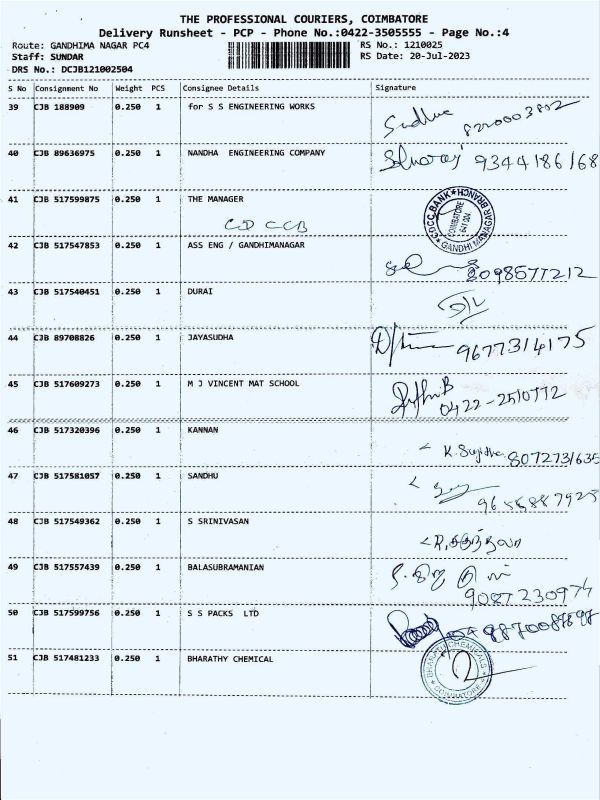 THE PROFESSIONAL COURIERS, COIMBATORE
Delivery Runsheet - PCP - Phone No.:0422-3505555 - Page No.:4
Route: GANDHIMA NAGAR PC4 RS No.: 1210025
Staff: SUNDAR RS Date: 20-Jul-2023
DRS No.: DCJB121002504
S No Consignment No Weight PCS Consignee Details Signature
39 CJB 188909 0.250 1 for S S ENGINEERING WORKS
40 CJB 89636975 0.250 1 NANDHA ENGINEERING COMPANY 9344186168
41 CJB 517599875 0.250 1 THE MANAGER
CDCC BANK GANDHI MANAGAR BRANCH COIMBATORE 641 004
CD CCB
42 CJB 517547853 0.250 1 ASS ENG / GANDHIMANAGAR
43 CJB 517540451 0.250 1 DURAI
44 CJB 89708826 0.250 1 JAYASUDHA 9677314175
45 CJB 517609273 0.250 1 M J VINCENT MAT SCHOOL
46 CJB 517320396 0.250 1 KANNAN 8072731635
47 CJB 517581057 0.250 1 SANDHU
48 CJB 517549362 0.250 1 S SRINIVASAN
49 CJB 517557439 0.250 1 BALASUBRAMANIAN
9087230974
50 CJB 517599756 0.250 1 S S PACKS LTD
51 CJB 517481233 0.250 1 BHARATHY CHEMICAL
COIMBATORE